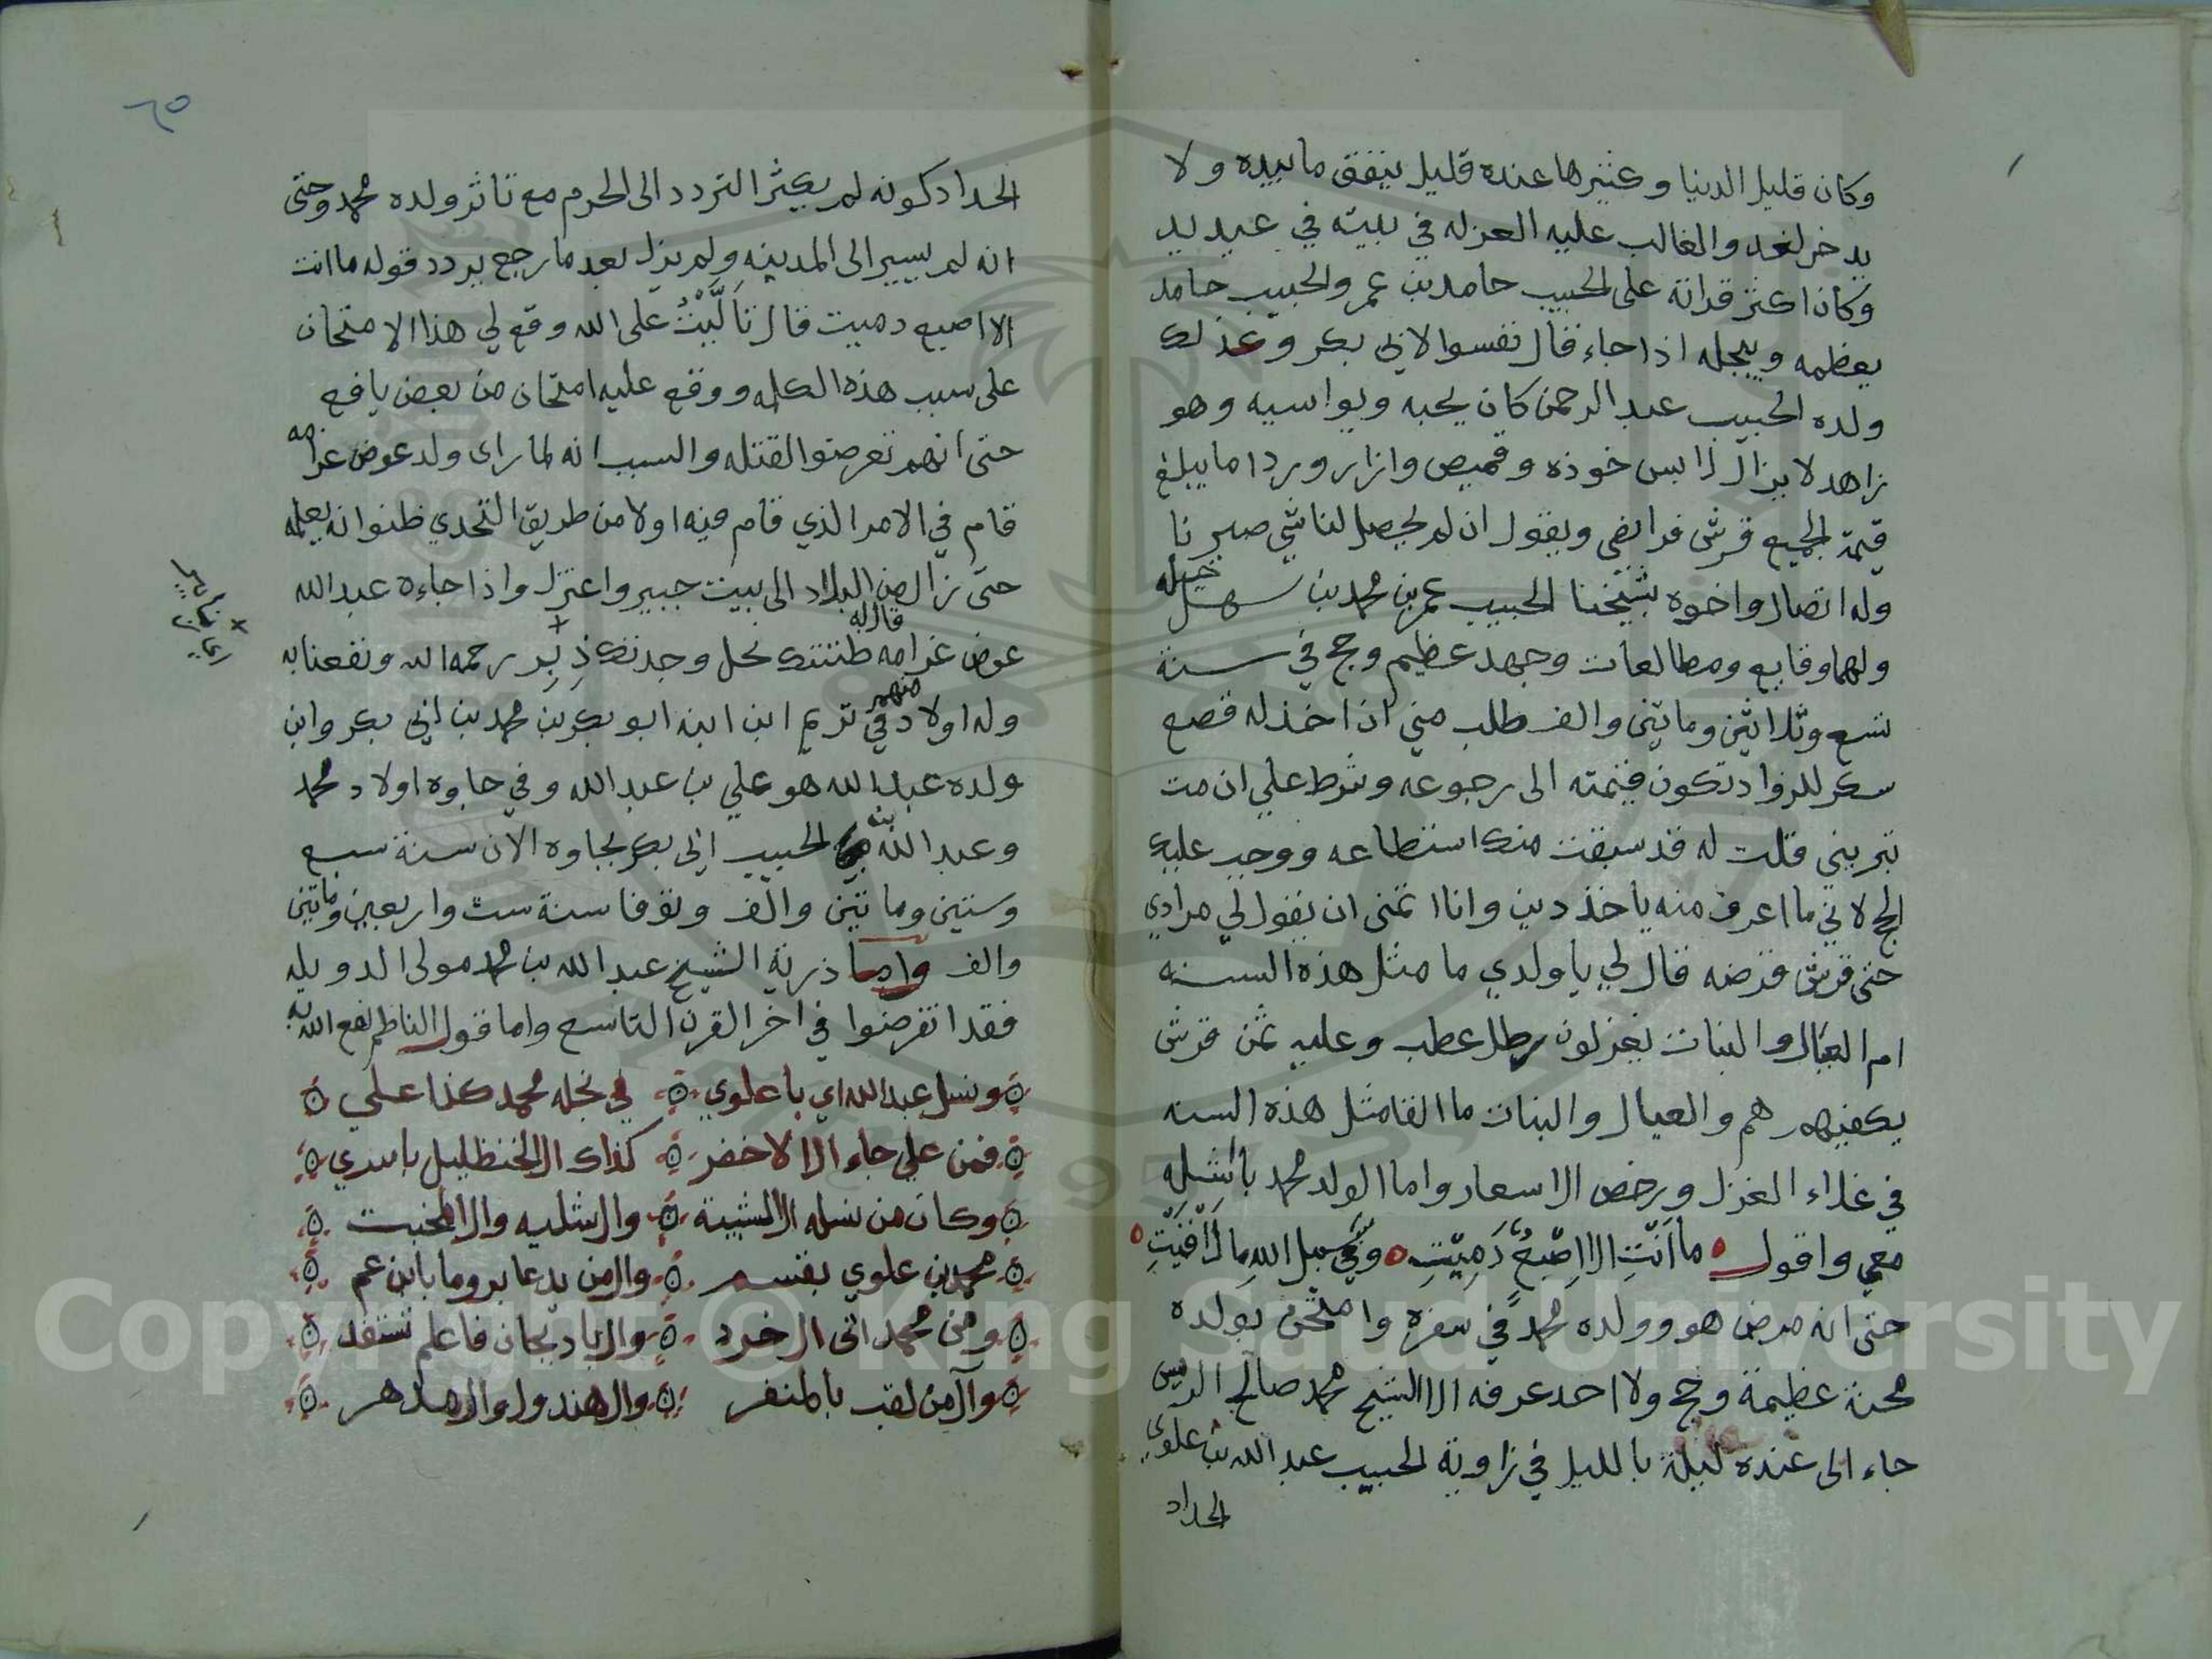 وكان قليل الدنيا وكثيرها عنده قليل ينفق ما بيده ولا
يدخر لغد والغالب عليه العزله في بيته في عيديد
وكان اكثر قراته على الحبيب حامد بن عمر والحبيب حامد
يعظمه ويبجله اذا جاء قال تفسوا لابي بكر وكذلك
ولده الحبيب عبد الرحمن كان يحبه ويواسيه وهو
زاهد لا يزال لابس خوذه وقميص وازار وردا ما يبلغ
قيمة الجميع قرش فرانضي ويقول ان لم يحصل لنا شي صبرنا
وله اتصال واخوه بشيخنا الحبيب عمر بن محمد بن سهل جمله
ولهما وقايع ومطالعات وجهد عظيم وحج في سنة
تسع وثلاثين ومايتين والف وطلب مني ان اخذ له قصع
سكر للزواد تكون قيمته الى رجوعه وشرط علي ان مت
تبريني قلت له قد سبقت منك استطاعه ووجب عليك
الحج لاني ما اعرف منه ياخذ دين وانا اتمنى ان يقول لي مرادي
حتى قرش قرضه قال لي يا ولدي ما مثل هذه السنه
ام العيال والبنات يغزلون رطل عطب وعليه ثمن قرش
يكفيهم هم والعيال والبنات ما القا مثل هذه السنه
في غلاء الغزل ورخص الاسعار واما الولد محمد باشله
معي واقول ما اَنْتِ الا اِصْبعٌ دَمِيْتِ وفي سبيل الله ما لاقيتِ
حتى انه مرض هو وولده محمد في سفره وامتحن بولده
محنة عظيمة وحج ولا احد عرفه الا الشيخ محمد صالح الريس
جاء الى عنده ليلة بالليل في زاوية الحبيب عبد الله بن علوي
الحداد
٦٥
الحداد كونه لم يكثر التردد الى الحرم مع تاثر ولده محمد وحتى
انه لم يسير الى المدينه ولم يزل بعد ما رجع يردد قوله ما انت
الا اصبع دميت قال تَأَلَّيْتُ على الله وقع لي هذا الامتحان
على سبب هذه الكلمه ووقع عليه امتحان من بعض يافع
حتى انهم تعرضوا لقتله والسبب انه لما راى ولد عوض غرامه
قام في الامر الذي قام فيه اولا من طريق التحدي ظنوا انه يعلمه
حتى نزل من البلاد الى بيت جبير واعتزل واذا جاءه عبد الله
عوض غرامه قال له ظننتك نحل وجدتك ذِبِر رحمه الله ونفعنا به
وله اولاد منهم في تريم ابن ابنه ابو بكر بن محمد بن ابي بكر وابن
ولده عبد الله هو علي بن عبد الله وفي جاوه اولاد محمد
وعبد الله بن الحبيب ابي بكر بجاوه الان سنة سبع
وستين وماتين والف وتوفا سنة ست واربعين وماتين
والف واما ذرية الشيخ عبد الله بن محمد مولى الدويله
فقد انقرضوا في اخر القرن التاسع واما قول الناظم نفع الله به
ونسل عبد الله اي باعلوي في نجله محمد كذا علي
فمن علي جاء ال الاخضر كذاك ال الخنظليل باسري
وكان من نسله ال الشيبة وال شليه وال المخبت
محمد بن علوي بقسم وال من يدعا بروما بابن عم
ومن محمد اتى ال خرد وال بادبجان فاعلم تستفد
وآل من لقب بالمنفر وال هندول وال هدهر